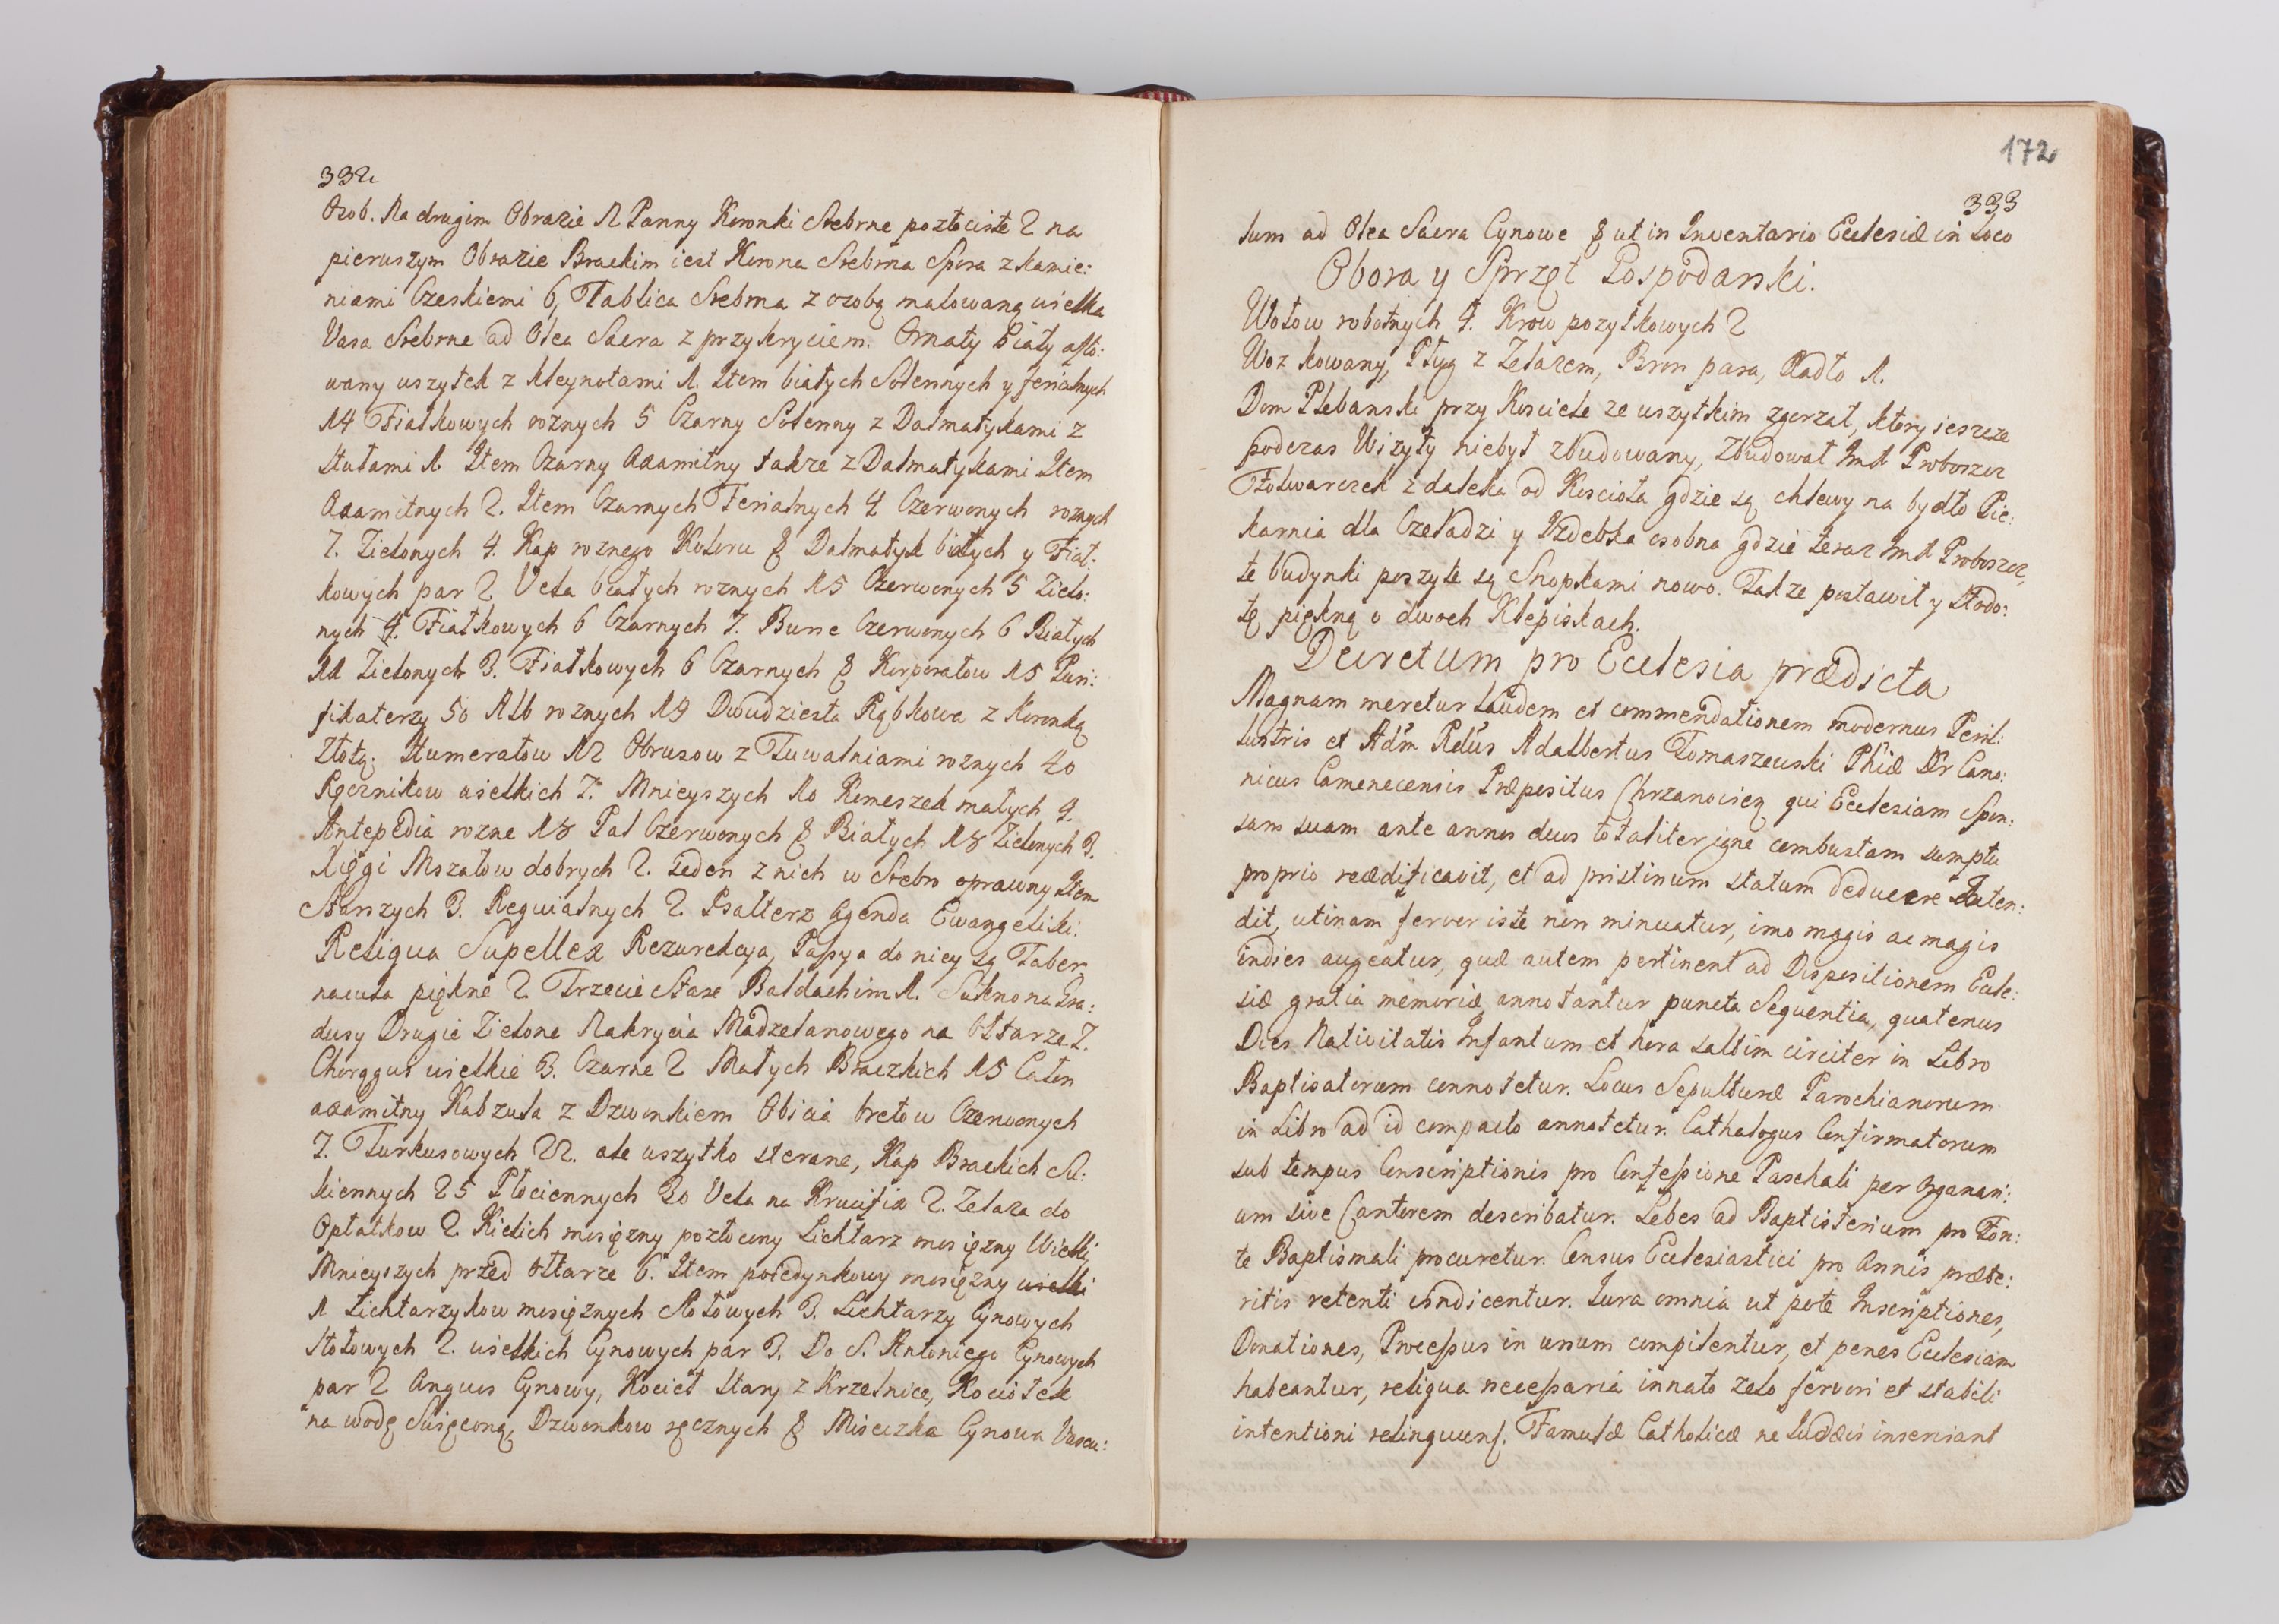 332
Osob. Na drugim Obrazie N Panny Koronki Srebrne pozłociste 2 na
pierwszym Obrazie Brackim iest Korona Srebrna Spora z kamie:
niami Czeskiemi 6, Tablica Srebrna z osobą malowaną wielka
Vasa Srebrne ad Olea Sacra z przykryciem. Ornaty Biały
wany wszytek z kleynotami 1. Item białych Solennych y ferialnych
14 Fiałkowych roznych 5 Czarny Solenny z Dalmatykami z
Stułami 1. Item Czarny Axamitny takze z Dalmatykami Item
Axamitnych 2. Item Czarnych Ferialnych 4 Czerwonych roznych
7. Zielonych 4. Kap roznego Koloru 8 Dalmatyk białych y Fiał:
kowych par 2 Vela białych roznych 15 Czerwonych 5 Zielo:
nych 4. Fiałkowych 6 Czarnych 7. Burse Czerwonych 6 Białych
11 Zielonych 3. Fiałkowych 6 Czarnych 8 Korporałow 15 Puri:
fikaterzy 50 Alb roznych 19 Dwudziesta Rąbkowa z Koronką
Złotą. Humerałow 12 Obrusow z Tuwalniami roznych 40
Ręcznikow wielkich 7. Mnieyszych 10 Komeszek małych 9.
Antepedia rozne 18 Pal Czerwonych 8 Białych 18 Zielonych 3.
Xięgi Mszałow dobrych 2. Jeden z nich w Srebro oprawny Item
Starszych 3. Requialnych 2. Psalterz Agenda Ewangeliki:
Reliqua Supellex Rezurekcya, Passya do niey są Taber
nacula piękne 2. Trzecie Stare Baldachim 1. Sukno na Gra:
dusy Drugie Zielone Nakrycia Madzelanowego na Ołtarze 7.
Chorągwi wielkie 3. Czarne 2 Małych Brackich 15 Całun
axamitny Kabzula z Dzwonkiem Obicia bretow Czerwonych
7. Turkusowych 22. ale wszytko sterane, Kap Brackich Su:
kiennych 25 Płociennych 30 Vela na Krucifix 2. Zelaza do
Opłatkow 2. Kielich mosięzny pozłocony Lichtarz mosięzny Wielki,
Mnieyszych przed Ołtarze 6. Item poiedynkowy mosięzny wielki
1 Lichtarzykow mosięznych Stołowych 3. Lichtarzy Cynowych
Stołowych 2. wielkich Cynowych par 3. Do S. Antoniego Cynowych
par 2 Angwis Cynowy, Kocieł stary z Krzelnice, Kociołek
na wodę Swięconą, Dzwonkow ręcznych 8 Miseczka Cynowa Vascu:
172
333
lum ad Olea Sacra Cynowe 8 ut in Inventario Ecclesiæ in Loco
Obora y Sprzęt Gospodarski.
Wołow robotnych 4. Krow pozytkowych 2
Woz kowany, Pług z Zelazem, Bron para, Radło 1.
Dom Plebanski przy Kosciele ze wszytkim zgorzał, ktory ieszcze
podczas Wizyty niebył zbudowany, Zbudował Imć Proboszcz
Folwarczek zdaleka od Kosciola gdzie są chlewy na bydło Pie:
karnia dla Czeladzi y Izdebka osobna gdzie teraz Imć Proboszcz,
te budynki poszyte są Snopkami nowo. Takze postawił y Stodo:
łę piękną o dwoch Klepiskach.
Decretum pro Ecclesia prædicta
Magnam meretur laudem et commendationem modernus Peril:
lustris et Adm Rdus Adalbertus Tomaszewski Phiæ Dr Cano:
nicus Camenecensis Præpositus Chrzanovien qui Ecclesiam Spon:
sam suam ante annos duos totaliter igne combustam sumptu
proprio reædificavit, et ad pristinum statum deducere Inten:
dit, utinam fervor iste non minuatur, imo magis ac magis
indies augeatur, quæ autem pertinent ad Dispositionem Eccle:
siæ gratia memoriæ annotantur puncta Sequentia, quatenus
Dies Nativitatis Infantum et hora saltim circiter in Libro
Baptisatorum connotetur. Locus Sepulturæ Parochianorum
in Libro ad id compacto annotetur. Cathalogus Confirmatorum
sub tempus Conscriptionis pro Confessione Paschali per Organari:
um sive Cantorem describatur. Lebes ad Baptisterium pro Fon:
te Baptismali procuretur. Census Ecclesiastici pro Annis præte:
ritis retenti vindicentur. Jura omnia ut pote Inscriptiones,
Donationes, Processus in unum compilentur, et penes Ecclesiam
habeantur, reliqua necessaria innato zelo fervori et stabili
intentioni relinquens. Famulæ Catholicæ ne Iudæis inserviant